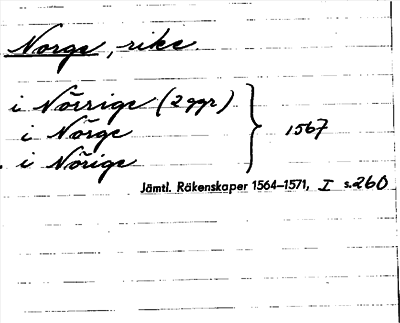 Norge, rike.
i Nörrige (2 ggr)
i Nörge } 1567
i Nörige
Jämtl. Räkenskaper 1564–1571, I s. 260